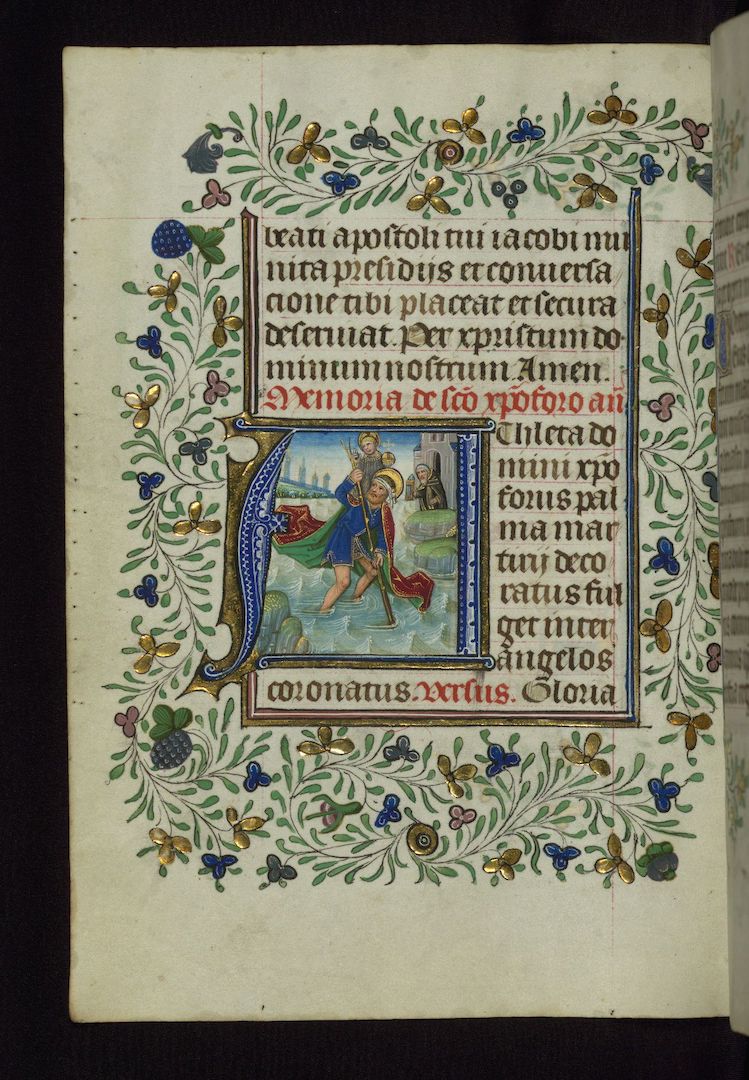 beati apostoli tui iacobi mu
nita presidijs et conuersa
cione tibi placeat et secura
deseruiat. Per xpristum do
minum nostrum. Amen.
Memoria de sc̄o xp̄oforo an̄
A Thleta do
mini xpo
forus pal
ma mar
tirij deco
ratus ful
get inter
angelos
coronatus. versus. Gloria